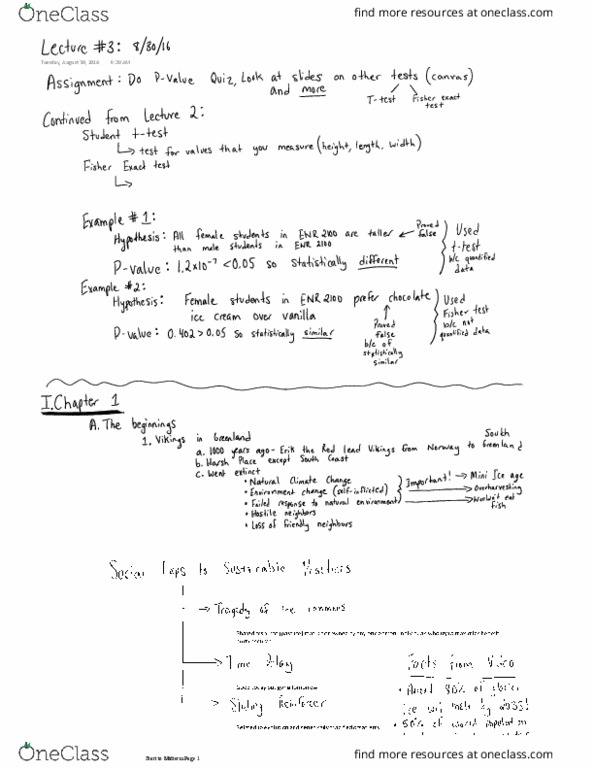 OneClass
find more resources at oneclass.com
Lecture #3: 8/30/16
Tuesday, August 30, 2016
Assignment: Do P-Value Quiz, Look at slides on other tests (canvas)
and more
T-test Fisher exact
test
Continued from Lecture 2:
Student t-test
↳ test for values that you measure (height, length, width)
Fisher Exact test
↳
Example #1:
Hypothesis: All female students in ENR 2100 are taller
than male students in ENR 2100
← Proved
false
Used
t-test
b/c quantified
data
P-value: 1.2x10⁻⁷ < 0.05 so statistically different
Example #2:
Hypothesis: Female students in ENR 2100 prefer chocolate
ice cream over vanilla
P-value: 0.402 > 0.05 so statistically similar
Proved
false
b/c of
statistically
similar
Used
Fisher test
b/c not
quantified data
I. Chapter 1
A. The beginnings
1. Vikings in Greenland
a. 1000 years ago - Erik the Red lead Vikings from Norway to South Greenland
b. Harsh Place except South Coast
c. Went extinct
• Natural Climate Change
• Environment change (self-inflicted)
• Failed response to natural environment
• Hostile neighbors
• Loss of friendly neighbors
Important! → Mini Ice age
→ Overharvesting
→ Wouldn't eat
fish
Social Traps to Sustainable
→ Tragedy of the commons
→ Time Delay
→ Sliding Reinforcer
Facts from Video
80% of
Ice will melt by
• 50% of world population
OneClass
Page 1
find more resources at oneclass.com